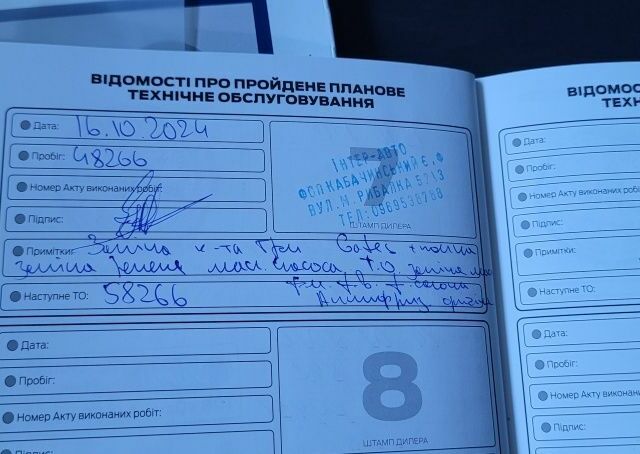 ВІДОМОСТІ ПРО ПРОЙДЕНЕ ПЛАНОВЕ
ТЕХНІЧНЕ ОБСЛУГОВУВАННЯ
Дата: 16.10.2024
Пробіг: 48266
Номер Акту виконаних робіт:
Підпис:
7
ІНТЕР-АВТО
ФОП КАБАЧИНСЬКИЙ Є.Ф
ВУЛ.М.РИБАЛКА 5/13
ШТАМП ДИЛЕРА
Примітки: Заміна к-та Грм Gates + помпа
заміна ременя мас. насоса Т.О заміна
Наступне ТО: 58266
Антифриз
Дата:
Пробіг:
Номер Акту виконаних робіт:
Підпис:
8
ШТАМП ДИЛЕРА
ВІДОМОС
ТЕХН
Дата:
Пробіг:
Номер Акту виконаних
Підпис:
Примітки:
Наступне ТО:
Дата:
Пробіг:
Номер Акту виконаних
Підпис: